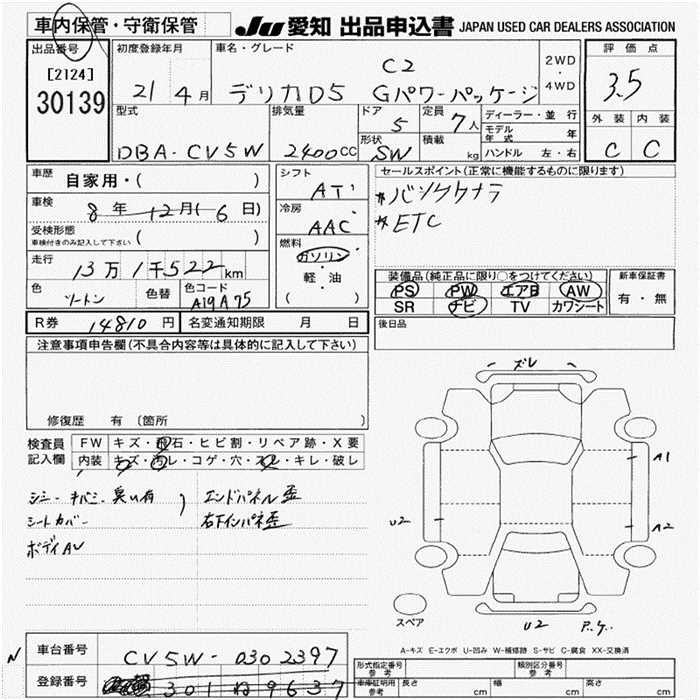 車内保管・守衛保管 JU 愛知 出品申込書 JAPAN USED CAR DEALERS ASSOCIATION
出品番号 初度登録年月 車名・グレード 評価点
[2124] C2 2WD・4WD
30139 21 4月 デリカD5 Gパワーパッケージ 3.5
型式 排気量 ドア 定員 ディーラー・並行 外装 内装
5 7人 モデル年式 年
DBA-CV5W 2400CC 形状 SW 積載 kg ハンドル 左・右 C C
車歴 自家用・( ) シフト AT セールスポイント(正常に機能するものに限ります)
車検 8年12月(6日) 冷房 AAC
受検形態 ( ) ETC
車検付きのみ記入して下さい
燃料 ガソリン・軽・油 ( )
走行 13万1千522km 装備品(純正品に限り○をつけてください) 新車保証書
色 ツートン 色替 色コード A19A75 PS PW エアB AW 有・無
SR ナビ TV カワシート
R券 14810円 名変通知期限 月 日 後日品
注意事項申告欄(不具合内容等は具体的に記入して下さい)
ズレ
修復歴 有 〔箇所 〕
検査員記入欄 FW キズ・飛石・ヒビ割・リペア跡・X要
内装 キズ・汚レ・コゲ・穴・スレ・キレ・破レ
A1
シミ エンドパネル歪
シートカバー 右下インパネ歪
U2 A2
ボディAU
スペア
U2 P.ケ.
A-キズ E-エクボ U-凹み W-補修跡 S-サビ C-腐食 XX-交換済
N 車台番号 CV5W-0302397
登録番号 301 ね 9637
形式指定番号 参考 類別区分番号 参考
車庫証明用 参考 長さ cm 幅 cm 高さ cm